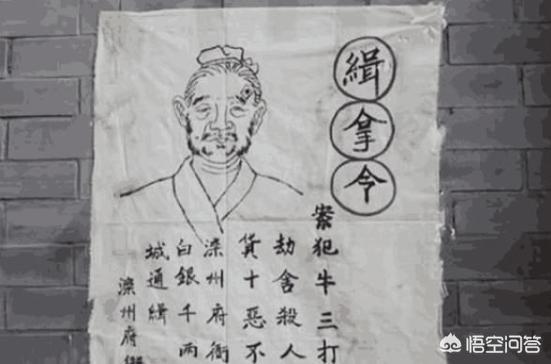 緝拿令
案犯牛三打
劫舍殺人
貨十惡不
滦州府衙
白銀千兩
城通緝
滦州府
悟空问答